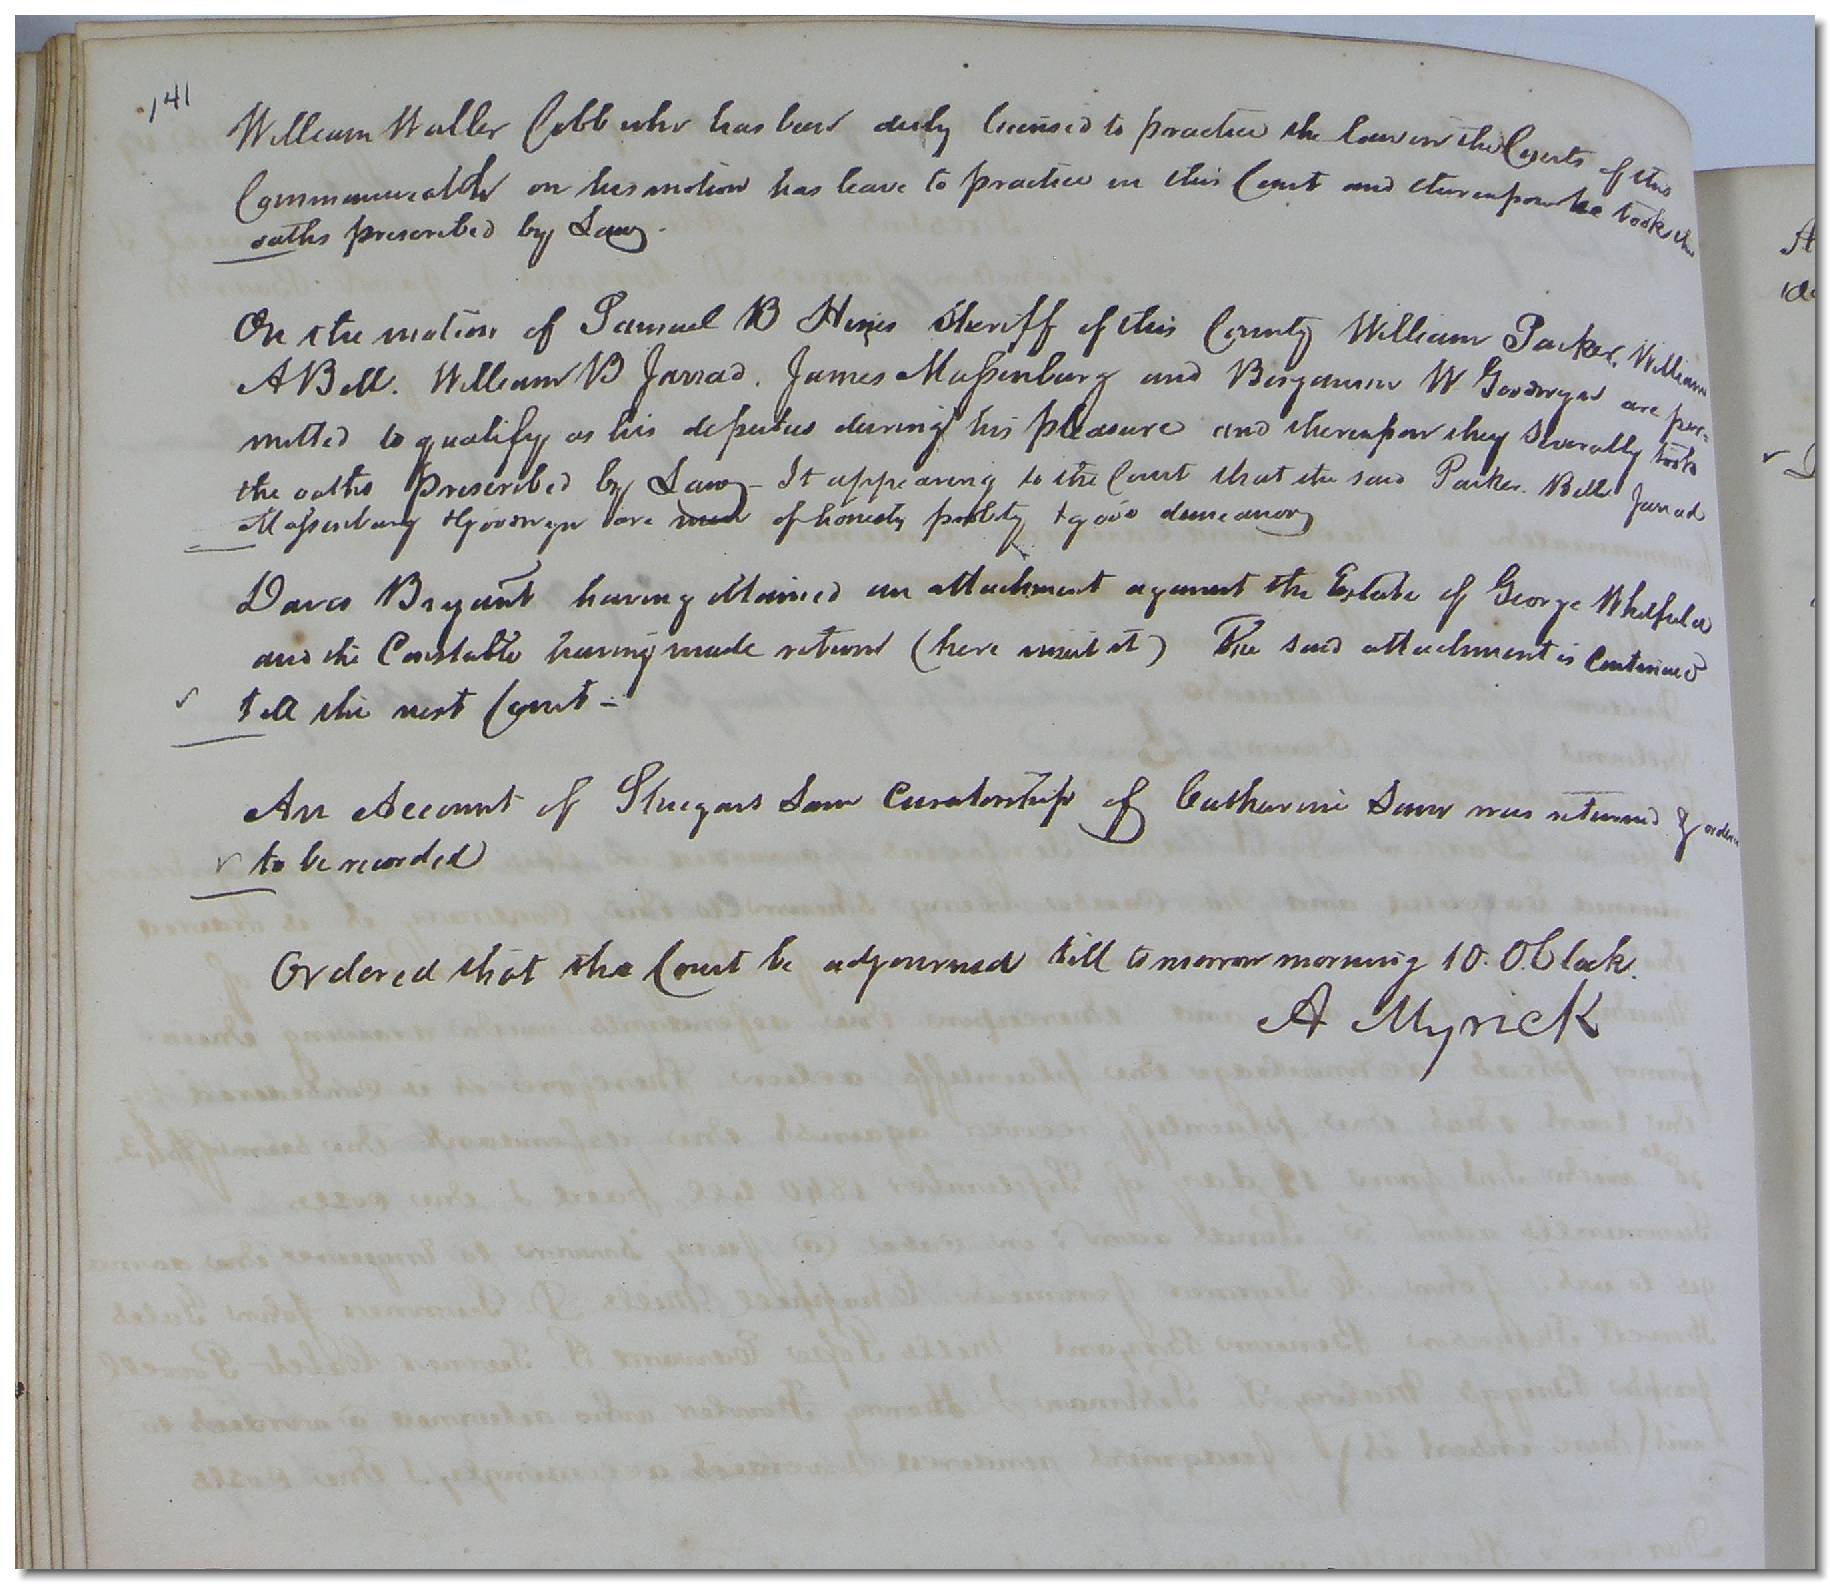 141
William Waller Cobb who has been duly licensed to practice the law in the Courts of this
Commonwealth on his motion has leave to practice in this Court and thereupon he took the
oaths prescribed by Law.
On the motion of Samuel B Hines Sheriff of this County William Parker, William
A Bell. William B Jarrad. James Massenburg and Benjamin W Goodwyn are per=
mitted to qualify as his deputies during his pleasure and thereupon they severally took
the oaths prescribed by Law - It appearing to the Court that the said Parker. Bell Jarrad
Massenburg & Goodwyn are men of honesty probity & good demeanor
Bryant having obtained an attachment against the Estate of George Whitfield
and the Constable having made return (here insert it) The said attachment is Continued
till the next Court -
An Account of Lam Curatorship of Catharine was returned &
to be recorded
Ordered that the Court be adjourned till tomorrow morning 10. O.Clock.
A Myrick